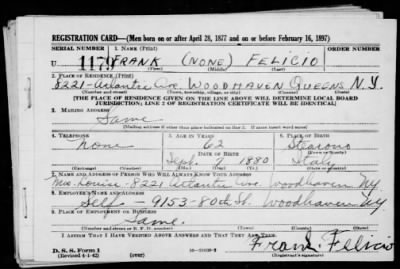 REGISTRATION CARD—(Men born on or after April 28, 1877 and on or before February 16, 1897)
SERIAL NUMBER 1. NAME (Print)
U 1179 FRANK (NONE) FELICIO
2. PLACE OF RESIDENCE (Print)
8221-Atlantic Ave. WOODHAVEN QUEENS N.Y.
(Number and street) (Town, township, village, or city) (County) (State)
[THE PLACE OF RESIDENCE GIVEN ON THE LINE ABOVE WILL DETERMINE LOCAL BOARD
JURISDICTION; LINE 2 OF REGISTRATION CERTIFICATE WILL BE IDENTICAL]
3. MAILING ADDRESS
Same
[Mailing address if other than place indicated on line 2. If same insert word same]
4. TELEPHONE 5. AGE IN YEARS 6. PLACE OF BIRTH
None 62
DATE OF BIRTH (Town or county)
Sept. 7 1880 Italy
(Exchange) (Number) (Mo.) (Day) (Yr.) (State or country)
7. NAME AND ADDRESS OF PERSON WHO WILL ALWAYS KNOW YOUR ADDRESS
Mrs. Louise-8221 Atlantic ave Woodhaven NY
8. EMPLOYER'S NAME AND ADDRESS
Self - 9153-80th St. Woodhaven NY
9. PLACE OF EMPLOYMENT OR BUSINESS
Same.
(Number and street or R. F. D. number) (Town) (County) (State)
I AFFIRM THAT I HAVE VERIFIED ABOVE ANSWERS AND THAT THEY ARE TRUE.
Frank Felicio
D. S. S. Form 1
(Revised 4-1-42) (over) (Registrant's signature)